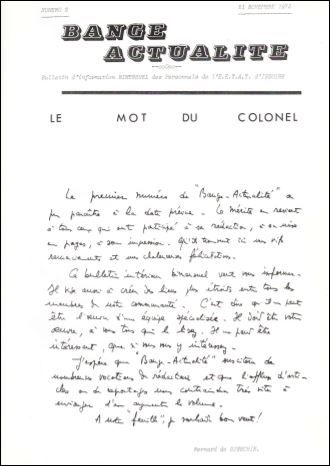 NUMERO 2
21 NOVEMBRE 1972
BANGE
ACTUALITE
Bulletin d'information BIMENSUEL des Personnels de l'E.E.T.A.T. d'ISSOIRE
LE MOT DU COLONEL
Le premier numéro de "Bange-Actualité" a
pu paraître à la date prévue. Le mérite en revient
à tous ceux qui ont participé à sa rédaction, à sa mise
en pages, à son impression. Qu'ils trouvent ici mes vifs
remerciements et mes chaleureuses félicitations.
Ce bulletin intérieur bimensuel veut vous informer.
Il vise aussi à créer des liens plus étroits entre tous les
membres de notre communauté. C'est dire qu'il ne peut
être l'œuvre d'une équipe spécialisée. Il doit être votre
œuvre, à vous tous qui le lisez. Il ne peut être
intéressant, que si vous vous y intéressez.
J'espère que "Bange-Actualité" suscitera de
nombreuses vocations de rédacteurs et que l'afflux d'arti-
cles ou de reportages nous contraindra très vite à
envisager d'en augmenter le volume.
A notre "feuille", je souhaite bon vent!
Bernard de